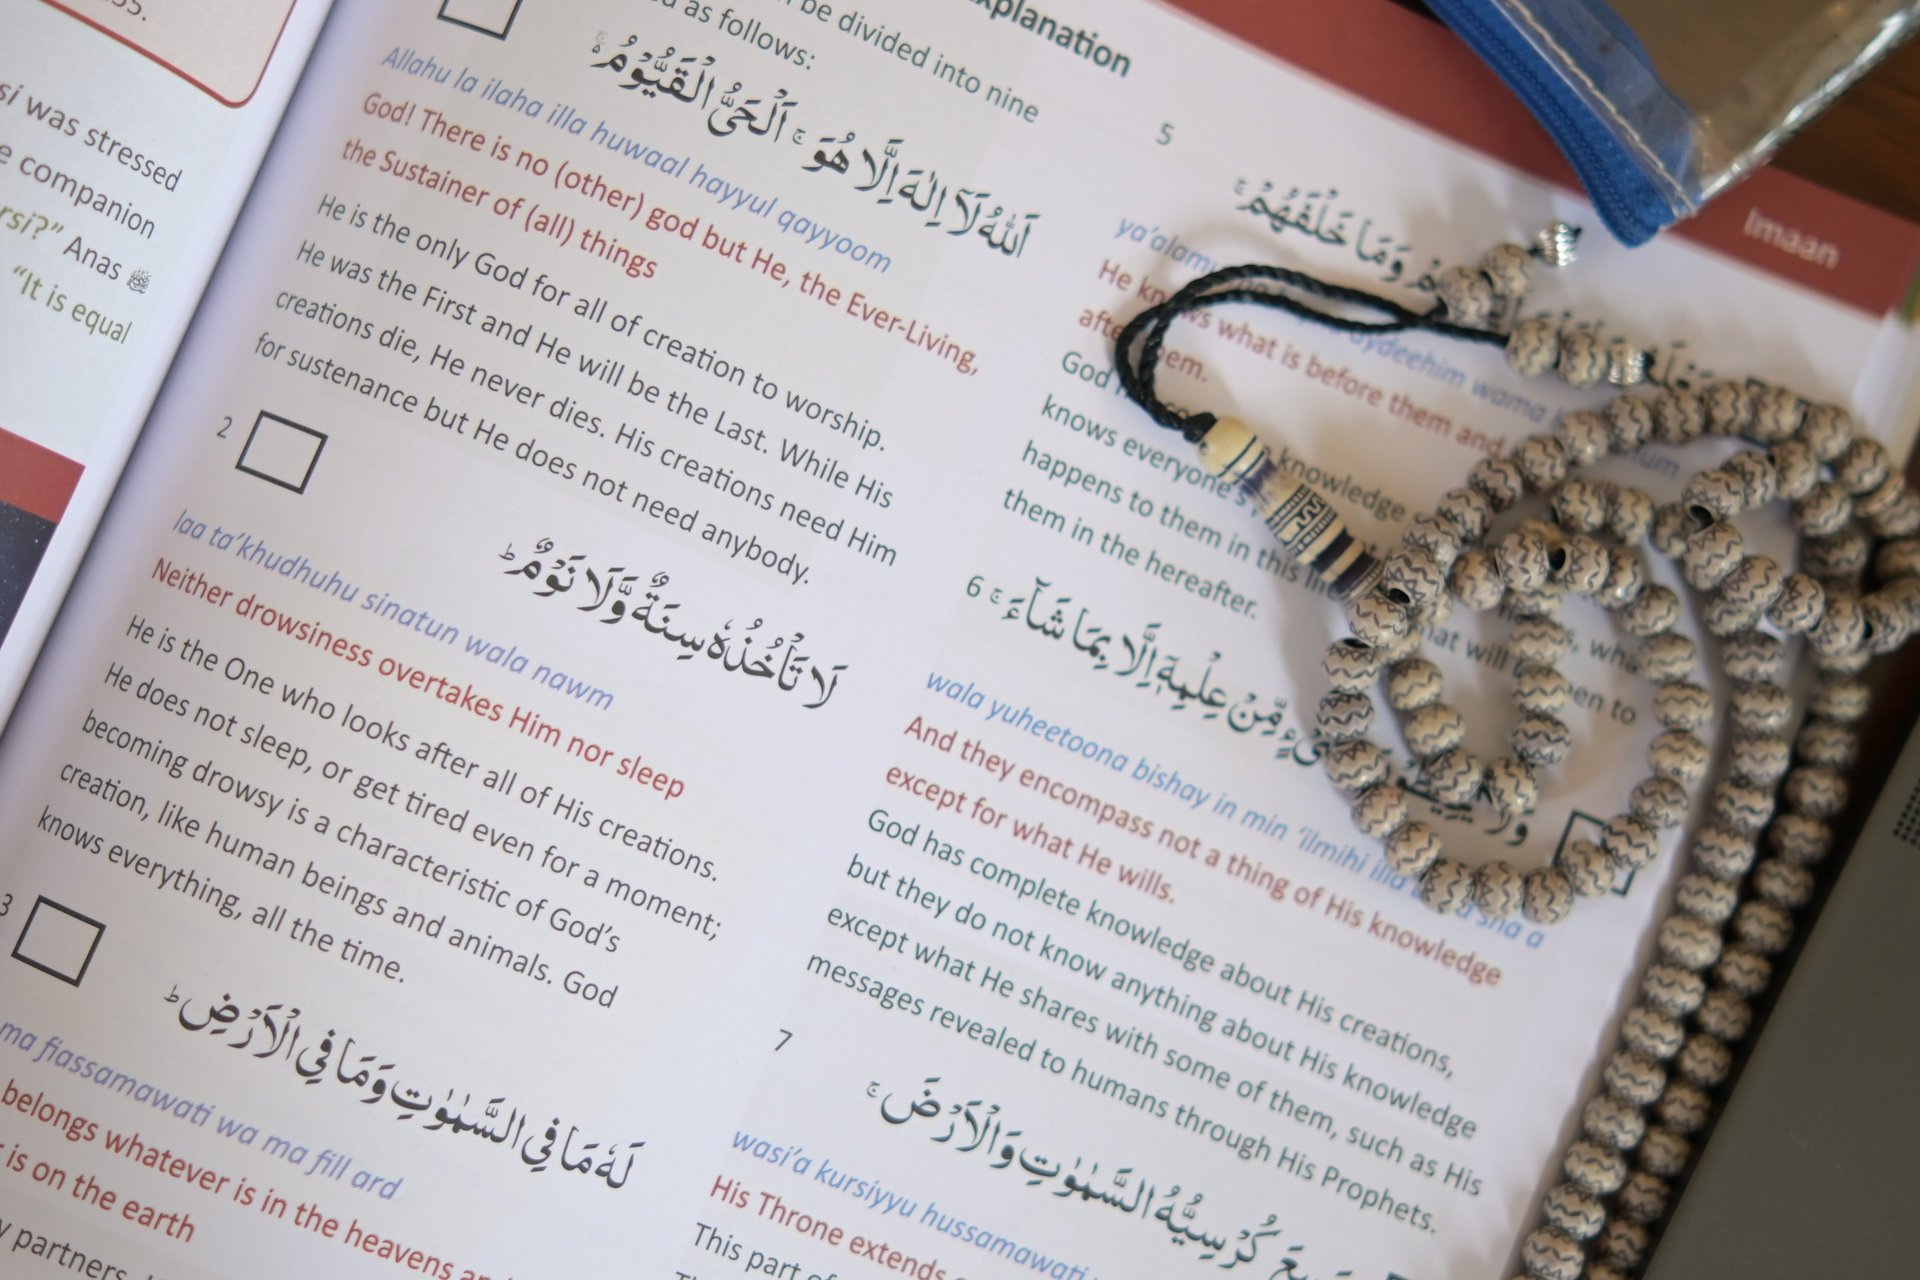 255.
si was stressed
companion
rsi?” Anas ﷺ
“It is equal
Explanation
be divided into nine
as follows:
اَللّٰهُ لَاۤ اِلٰهَ اِلَّا هُوَ ۚ اَلْحَيُّ الْقَيُّوْمُ ۚ
Allahu la ilaha illa huwaal hayyul qayyoom
God! There is no (other) god but He, the Ever-Living,
the Sustainer of (all) things
He is the only God for all of creation to worship.
He was the First and He will be the Last. While His
creations die, He never dies. His creations need Him
for sustenance but He does not need anybody.
2
لَا تَأْخُذُهٗ سِنَةٌ وَّلَا نَوْمٌ ؕ
laa ta’khudhuhu sinatun wala nawm
Neither drowsiness overtakes Him nor sleep
He is the One who looks after all of His creations.
He does not sleep, or get tired even for a moment;
becoming drowsy is a characteristic of God’s
creation, like human beings and animals. God
knows everything, all the time.
3
لَهٗ مَا فِي السَّمٰوٰتِ وَمَا فِي الْاَرْضِ ؕ
ma fiassamawati wa ma fill ard
belongs whatever is in the heavens
is on the earth
partners.
Imaan
5
وَمَا خَلْفَهُمْ ۚ
ya’alamu aydeehim wama
He knows what is before them and
after them.
God
knows everyone’s knowledge
happens to them in this what will happen to
them in the hereafter.
6
مِّنْ عِلْمِهٖۤ اِلَّا بِمَا شَآءَ ۚ
wala yuheetoona bishay in min ‘ilmihi illa sha a
And they encompass not a thing of His knowledge
except for what He wills.
God has complete knowledge about His creations,
but they do not know anything about His knowledge
except what He shares with some of them, such as His
messages revealed to humans through His Prophets.
7
وَسِعَ كُرْسِيُّهُ السَّمٰوٰتِ وَالْاَرْضَ ۚ
wasi’a kursiyyu hussamawati
His Throne extends
This part of